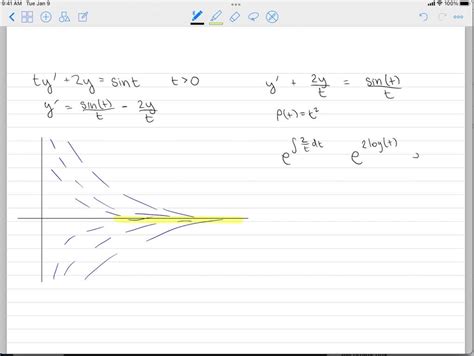 9:41 AM Tue Jan 9
ty' + 2y = sint t > 0
y' = sin(t)/t - 2y/t
y' + 2y/t = sin(t)/t
ρ(t) = t²
e^∫2/t dt e^2log(t)